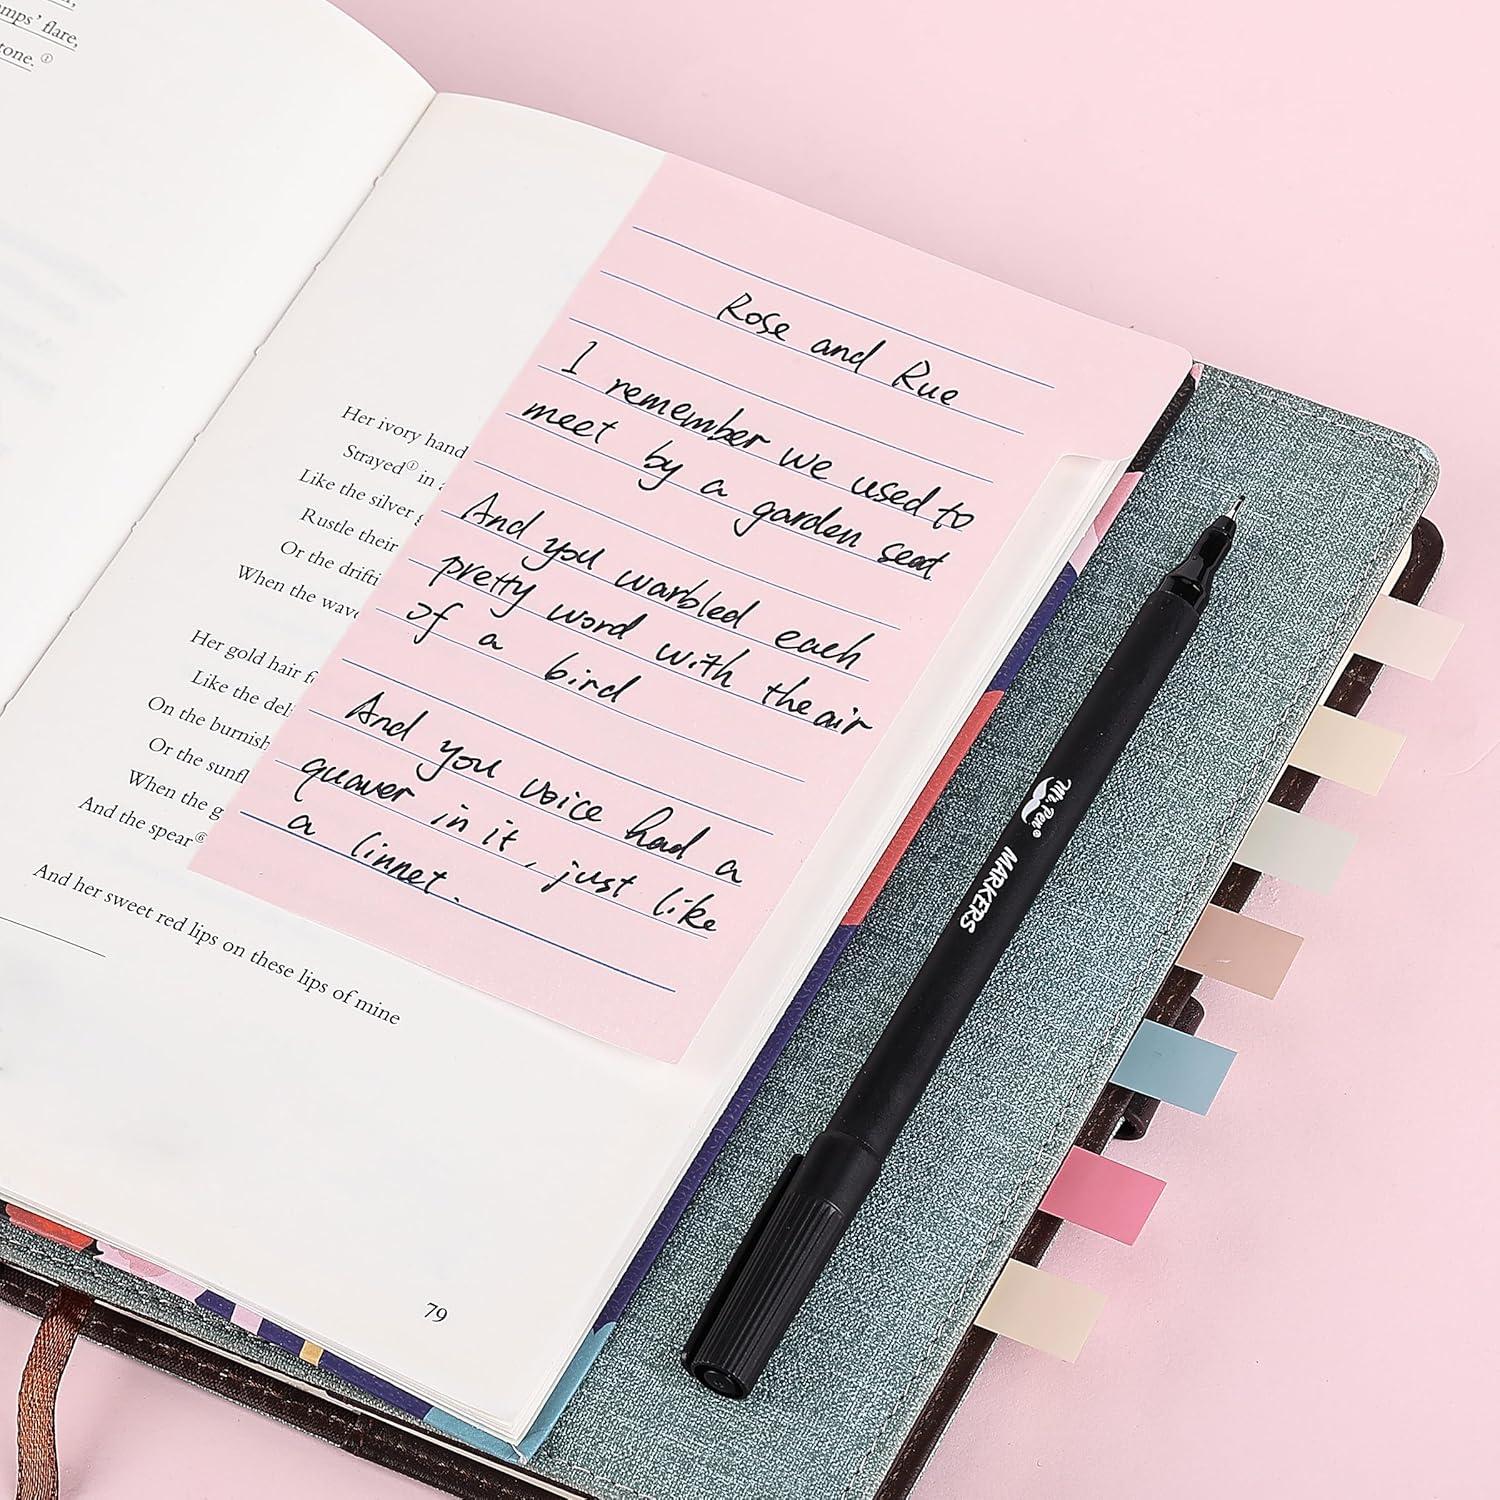 mps' flare,
tone. ①
Her ivory hand
Strayed① in
Like the silver
Rustle their
Or the drifti
When the wave
Her gold hair f
Like the del
On the burnish
Or the sunfl
When the g
And the spear⑥
And her sweet red lips on these lips of mine
79
Rose and Rue
I remember we used to
meet by a garden seat
And you warbled each
pretty word with the air
of a bird
And you voice had a
quaver in it, just like
a linnet.
Mr. Pen®
MARKERS